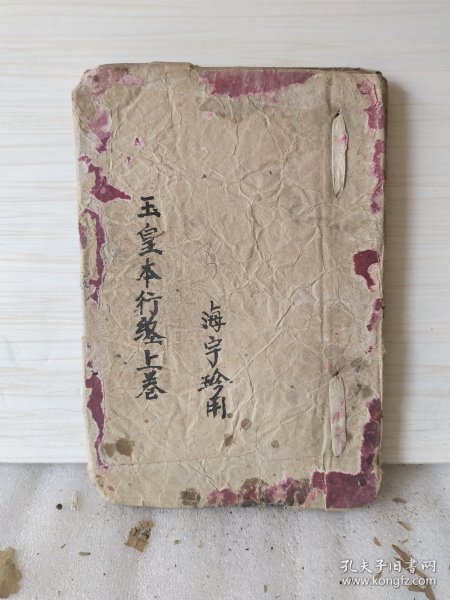 玉皇本行經上卷
海宁珍用
孔夫子旧书网
www.kongfz.com